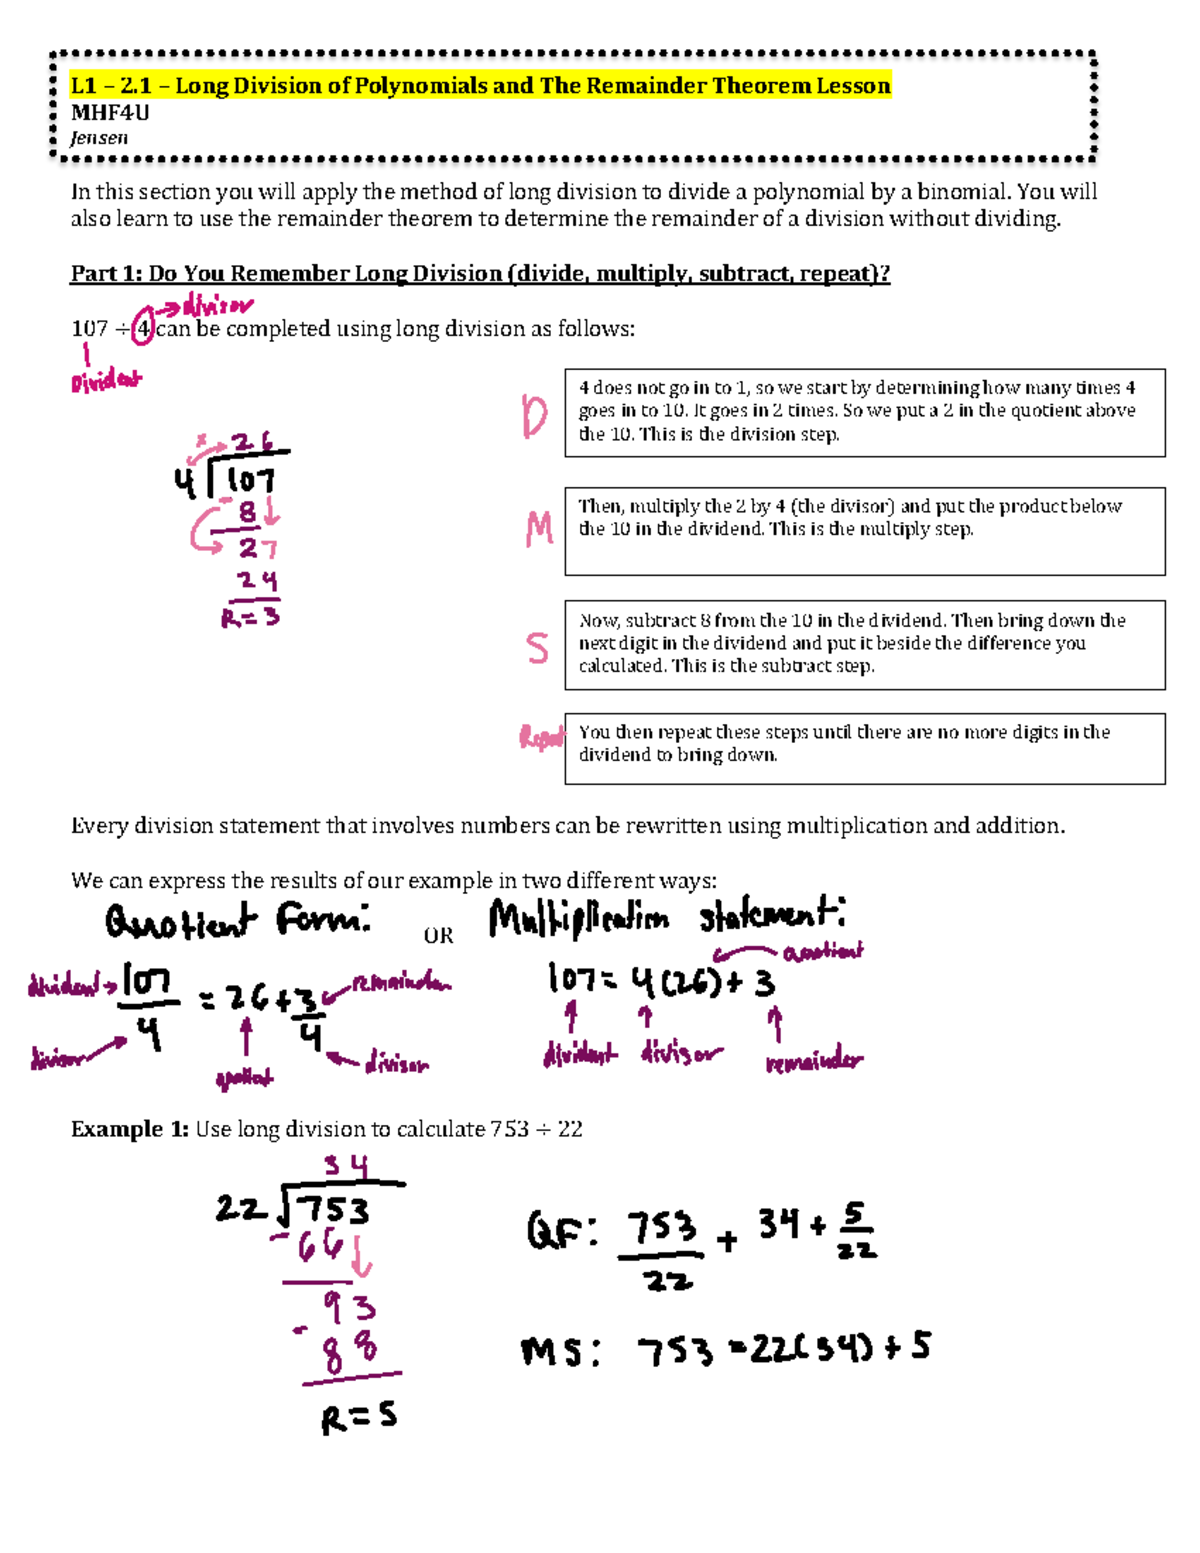 L1 – 2.1 – Long Division of Polynomials and The Remainder Theorem Lesson
MHF4U
Jensen
In this section you will apply the method of long division to divide a polynomial by a binomial. You will
also learn to use the remainder theorem to determine the remainder of a division without dividing.
Part 1: Do You Remember Long Division (divide, multiply, subtract, repeat)?
→ divisor
107 ÷ 4 can be completed using long division as follows:
Divident
D
4 does not go in to 1, so we start by determining how many times 4
goes in to 10. It goes in 2 times. So we put a 2 in the quotient above
the 10. This is the division step.
x 26
4 107
- 8
27
24
R = 3
M
Then, multiply the 2 by 4 (the divisor) and put the product below
the 10 in the dividend. This is the multiply step.
S
Now, subtract 8 from the 10 in the dividend. Then bring down the
next digit in the dividend and put it beside the difference you
calculated. This is the subtract step.
Repeat
You then repeat these steps until there are no more digits in the
dividend to bring down.
Every division statement that involves numbers can be rewritten using multiplication and addition.
We can express the results of our example in two different ways:
Quotient Form: OR Multiplication statement:
dividend → 107/4 = 26 + 3/4 ← remainder
divisor
quotient
divisor
quotient
107 = 4(26) + 3
divident divisor remainder
Example 1: Use long division to calculate 753 ÷ 22
34
22 753
- 66
93
- 88
R = 5
QF: 753/22 + 34 + 5/22
MS: 753 = 22(34) + 5